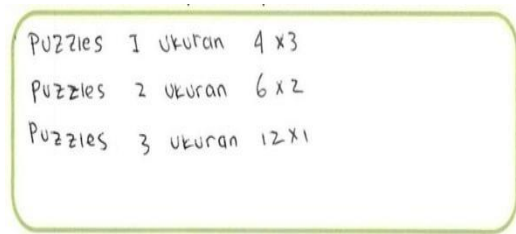 Puzzles I ukuran 4 x 3
Puzzles 2 ukuran 6 x 2
Puzzles 3 ukuran 12 x 1